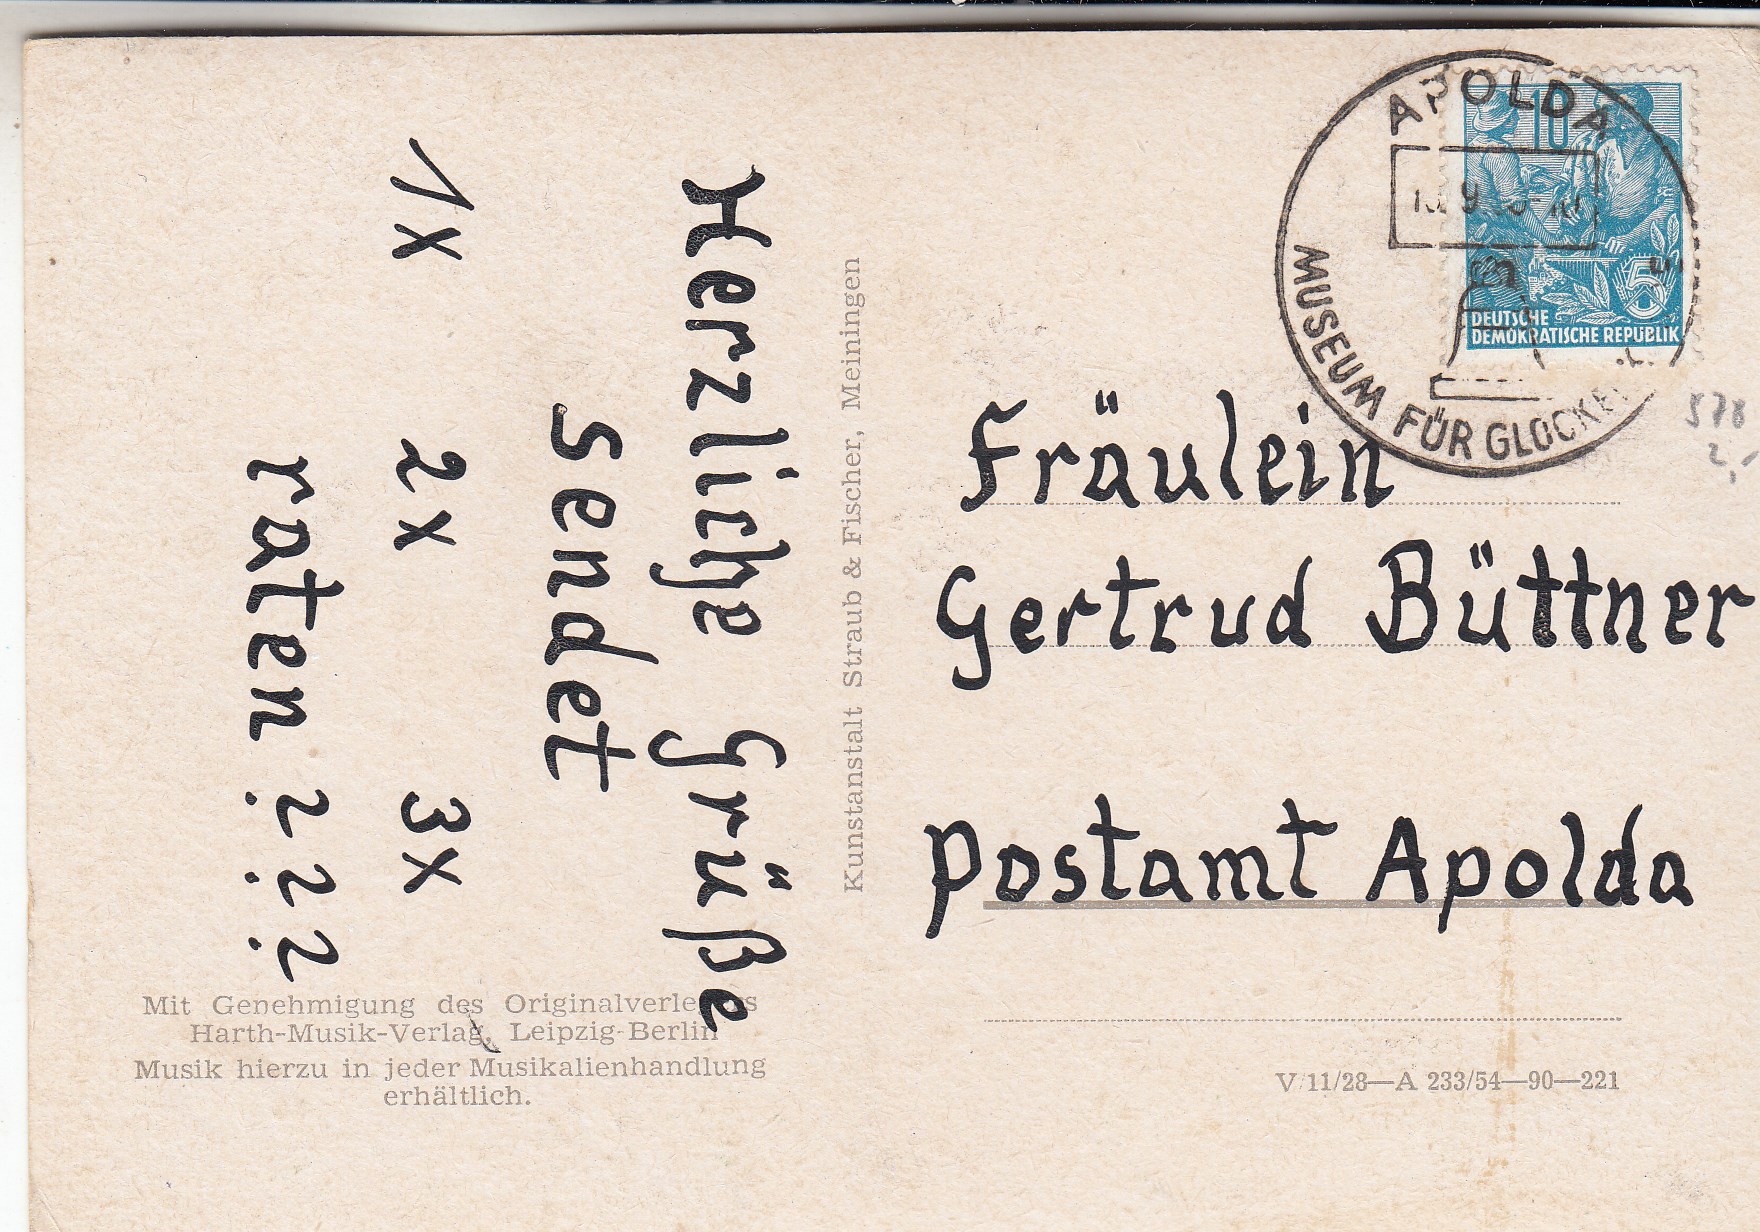 Herzliche Grüße
sendet
1x 2x 3x
raten ? ? ?
Mit Genehmigung des Originalverlegers
Harth-Musik-Verlag, Leipzig-Berlin
Musik hierzu in jeder Musikalienhandlung
erhältlich.
Kunstanstalt Straub & Fischer, Meiningen
APOLDA
MUSEUM FÜR GLOCKEN
10
5
DEUTSCHE
DEMOKRATISCHE REPUBLIK
578
2,-
Fräulein
Gertrud Büttner
Postamt Apolda
V/11/28—A 233/54—90—221